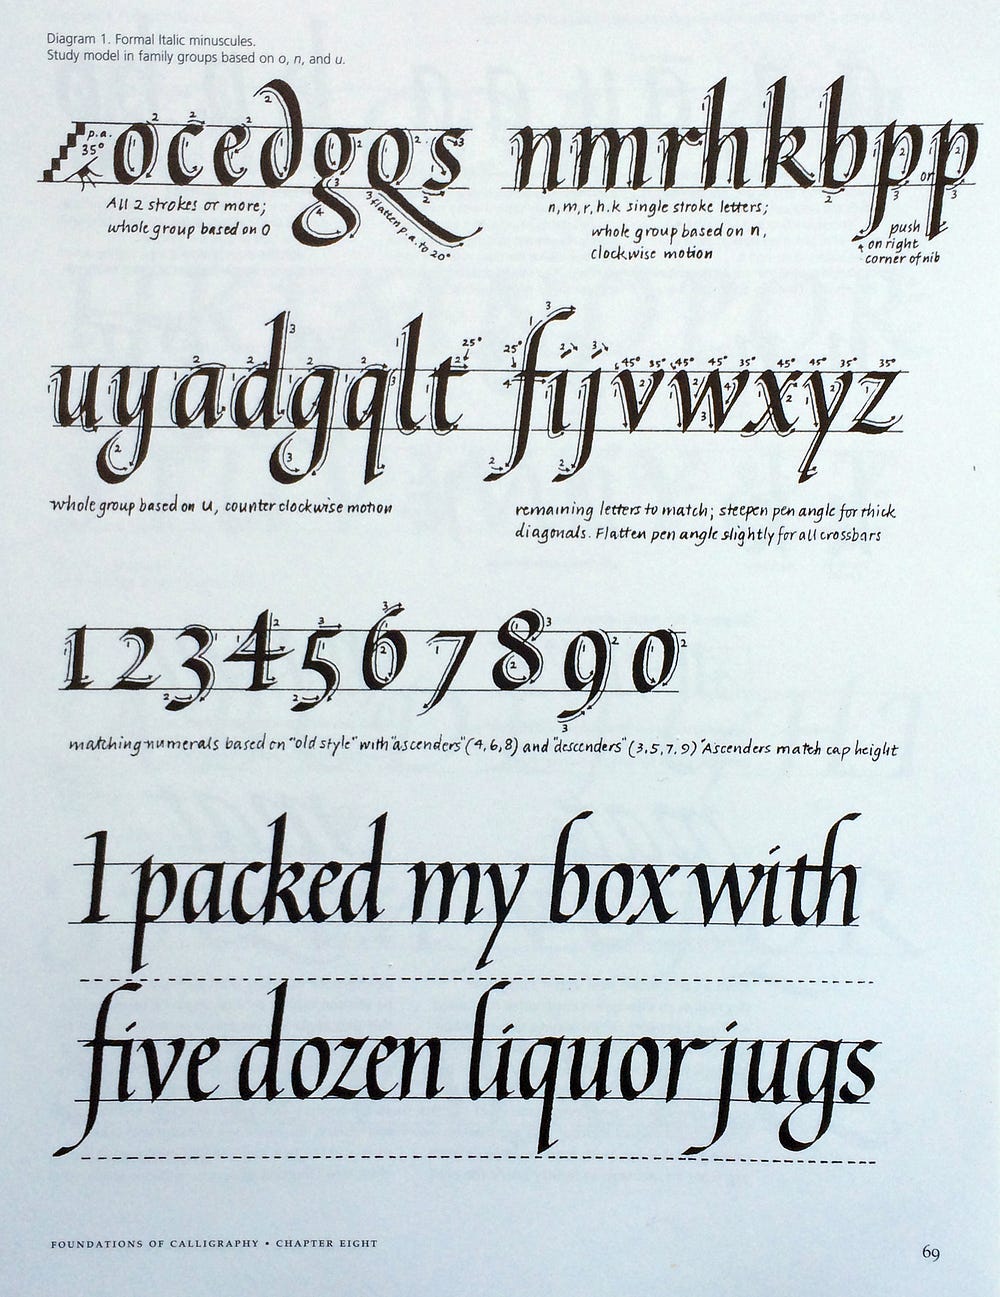 Diagram 1. Formal Italic minuscules.
Study model in family groups based on o, n, and u.
p.a.
35°
o c e d g q s n m r h k b p or p
3 flatten p.a. to 20°
All 2 strokes or more;
whole group based on o
n, m, r, h, k single stroke letters;
whole group based on n,
clockwise motion
push
on right
corner of nib
u y a d g q l t f i j v w x y z
25° 25° 45° 35° 45° 45° 35° 45° 45° 35° 35°
whole group based on u, counter clockwise motion
remaining letters to match; steepen pen angle for thick
diagonals. Flatten pen angle slightly for all crossbars
1 2 3 4 5 6 7 8 9 0
matching numerals based on "old style" with "ascenders" (4, 6, 8) and "descenders" (3, 5, 7, 9) Ascenders match cap height
I packed my box with
five dozen liquor jugs
FOUNDATIONS OF CALLIGRAPHY • CHAPTER EIGHT
69